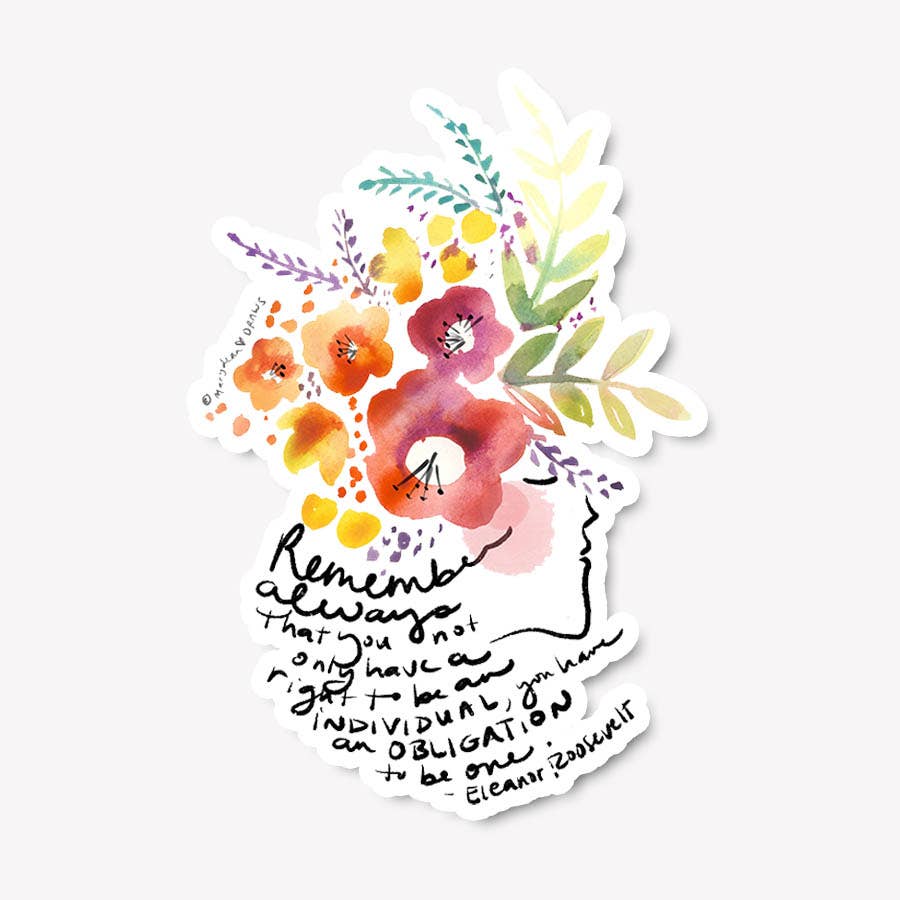 © Marydean ♥ DRAWS
Remember
always
that you not
only have a
right to be an
INDIVIDUAL, you have
an OBLIGATION
to be one.
- Eleanor Roosevelt